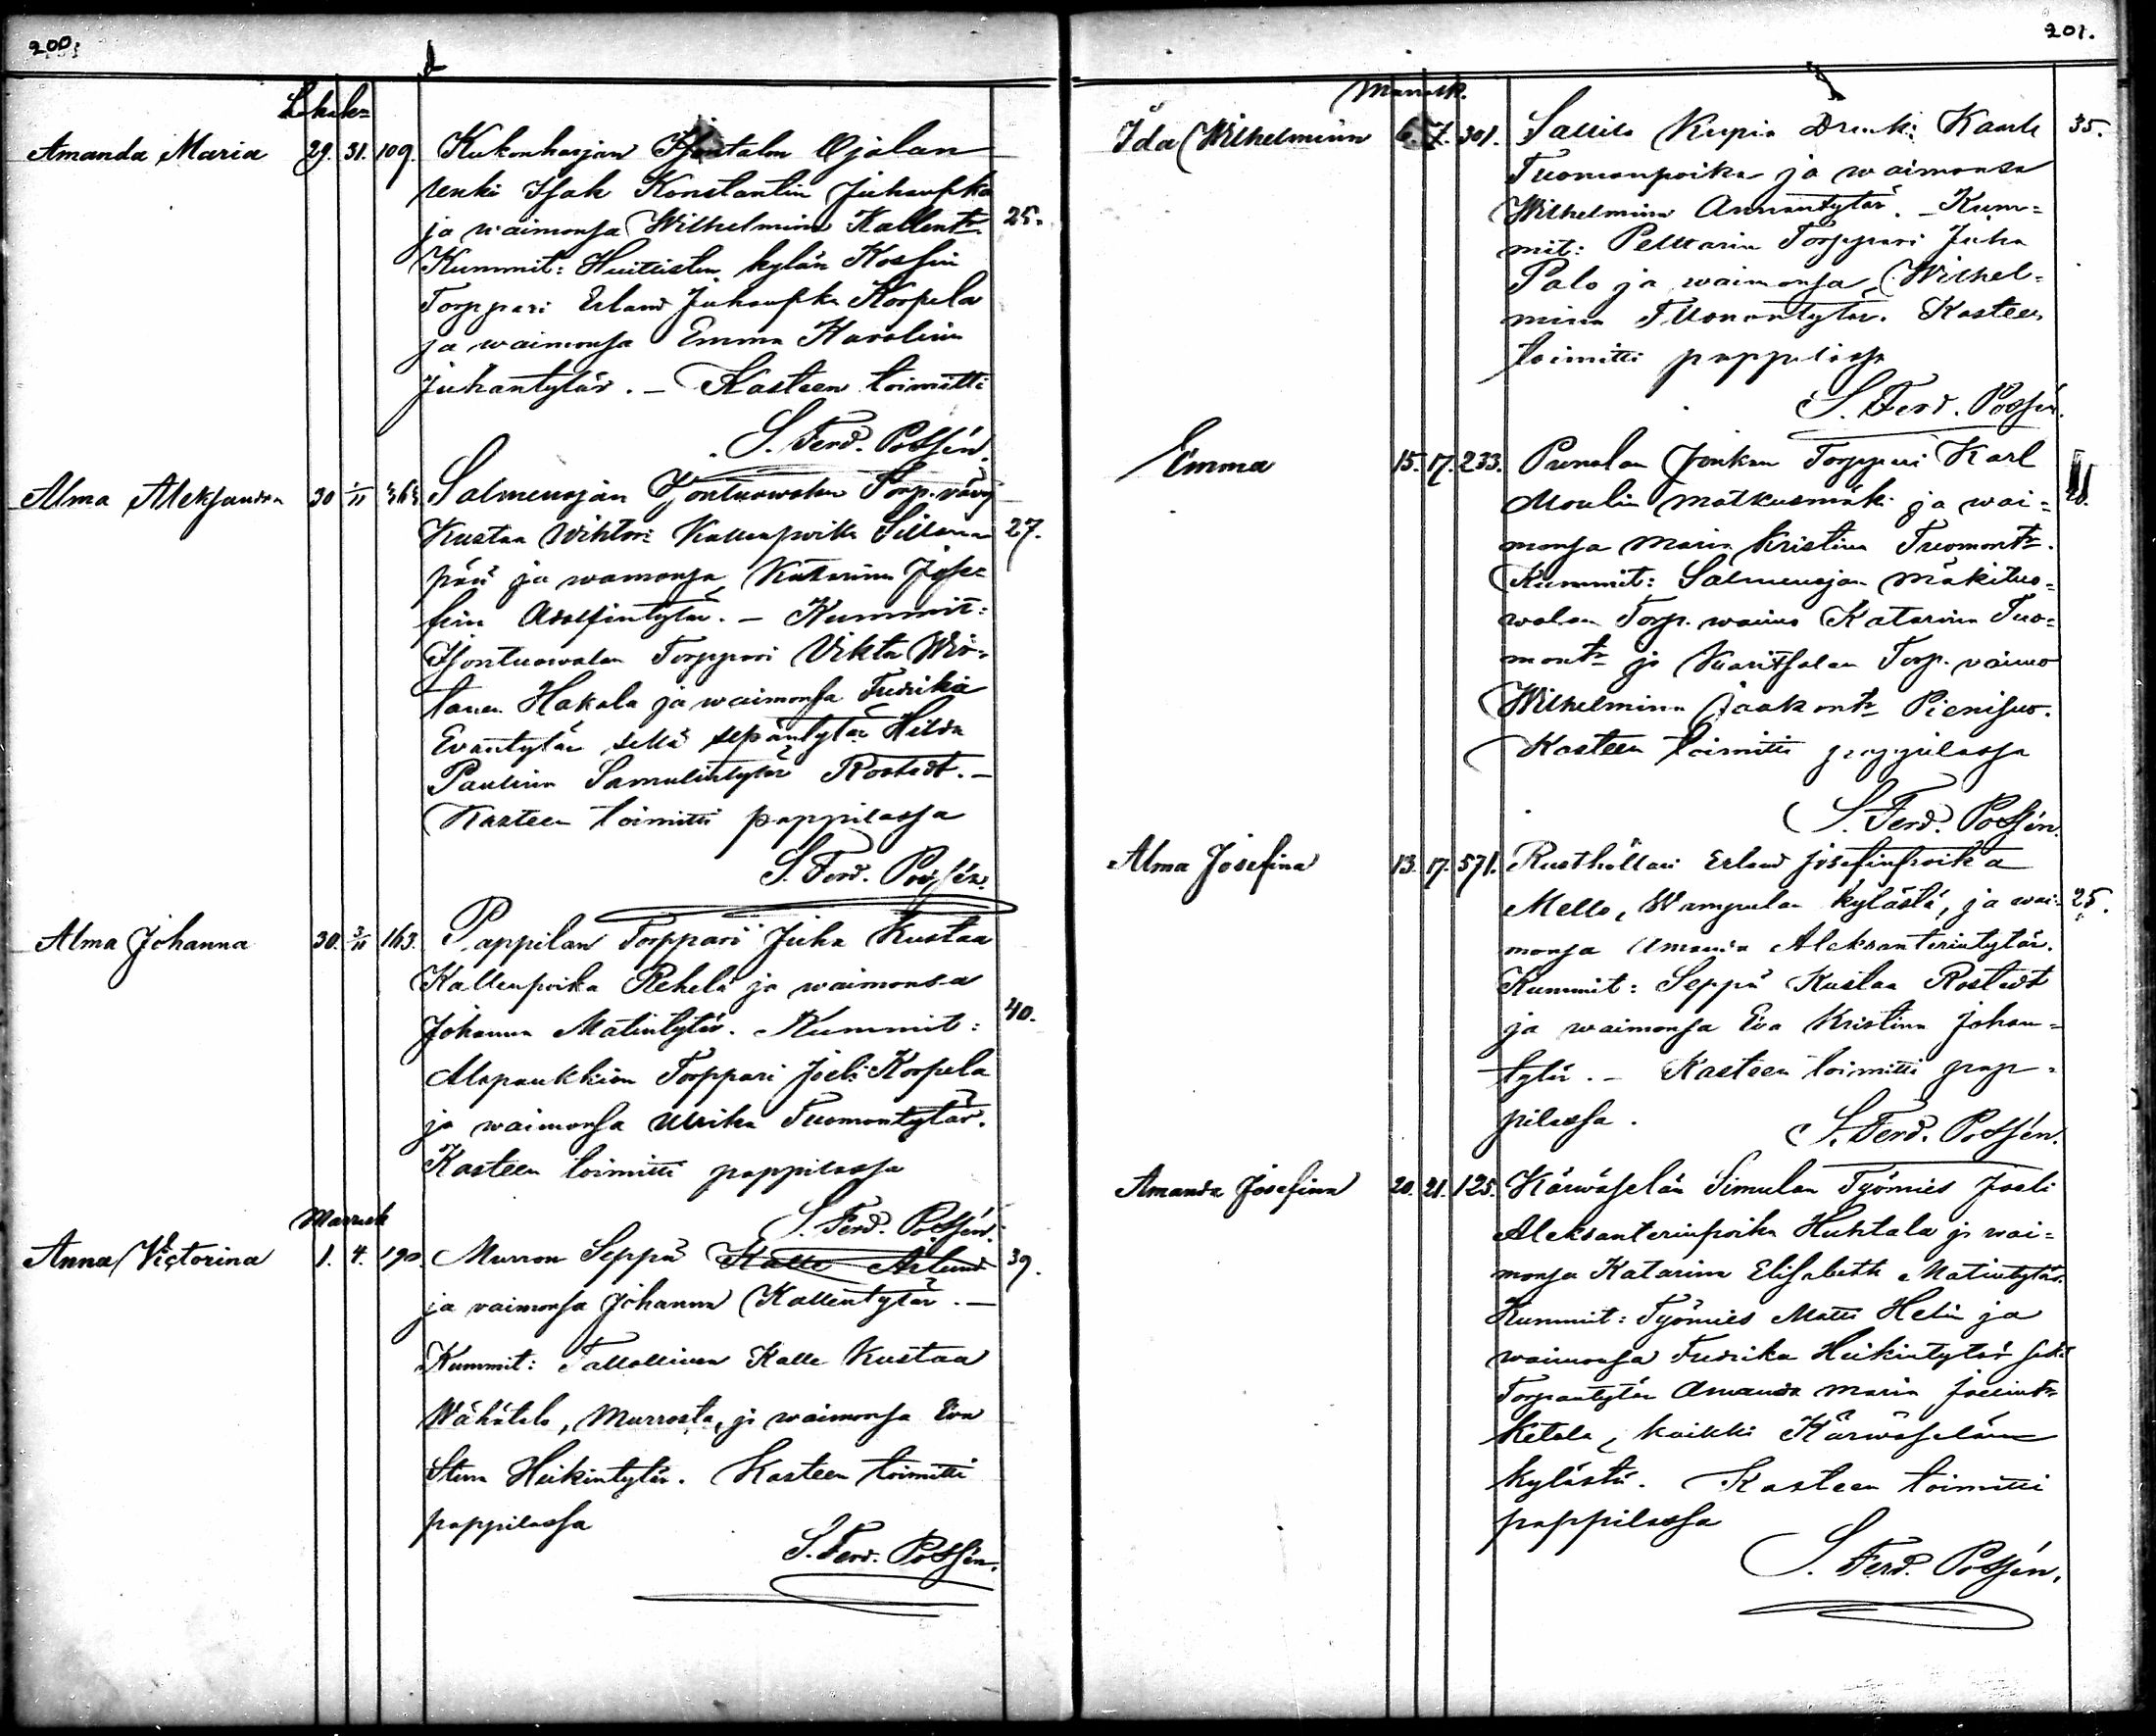 200.
Lokak=
Amanda Maria 29. 31. 109. Kukonharjan Isontalon Ojalan
renki Isak Konstantin Juhanpka
ja waimonsa Wilhelmina Kallentr 25.
Kummit: Huittisten kylän Kossin
Torppari Erland Juhanpka Korpela
ja waimonsa Emma Karolina
Juhantytär. – Kasteen toimitti
S. Ferd. Possén.
Alma Aleksandra 30 1/11 Salmenojan Isontuowalan Torp. vävy
Kustaa Wihtori Kallenpoika Sillan= 27.
pää ja wamonsa Katarina Jose=
fina Adolfintytär. – Kummit:
Isontuowalan Torppari Viktor Wir=
tanen Hakala ja waimonsa Fredrika
Evantytär sekä sepäntytär Hilda
Paulina Samulintytär Rostedt. –
Kasteen toimitti pappilassa
S. Ferd. Possén.
Alma Johanna 30. 3/11 163. Pappilan Torppari Juha Kustaa
Kallenpoika Rekelä ja waimonsa
Johanna Matintytär. Kummit: 40.
Alapaukkion Torppari Joeli Korpela
ja waimonsa Ulrika Tuomontytär.
Kasteen toimitti pappilassa
S. Ferd. Possén.
Marrask
Anna Victorina 1. 4. 190. Murron Seppä Kalle Aslund 39.
ja vaimonsa Johanna Kallentytär. –
Kummit: Talollinen Kalle Kustaa
Wähätalo, Murrosta, ja waimonsa Eva
Stina Heikintytär. Kasteen toimitti
pappilassa
S. Ferd. Possén.
201.
Marrask.
Ida Wilhelmiina 6. 7. 301. Sallila Kupia Drenki Kaarle 35.
Tuomonpoika ja waimonsa
Wilhelmina Annantytär. – Kum=
mit: Pelttarin Torppari Juha
Palo ja waimonsa Wilhel=
mina Tuomontytär. Kasteen
toimitti pappilassa
S. Ferd. Possén.
Emma 15. 17. 233. Punolan Jonkan Torppari Karl
Moulin Matkusmäki ja wai=
monsa Maria Kristina Tuomontr.
Kummit: Salmenojan Mäkituo=
walan Torp. waimo Katarina Tuo=
montr ja Kuaritsalan Torp. vaimo
Wilhelmina Jaakontr Pienisuo.
Kasteen toimitti pappilassa
S. Ferd. Possén.
Alma Josefina 13. 17. 571. Rusthollari Erland Josefinpoika
Mello, Wampulan kylästä, ja wai= 25.
monsa Amanda Aleksanterintytär.
Kummit: Seppä Kustaa Rostedt
ja waimonsa Eva Kristina Johan=
tytär. – Kasteen toimitti pap=
pilassa.
S. Ferd. Possén.
Amanda Josefina 20. 21. 125. Körwäselän Simulan Työmies Joeli
Aleksanterinpoika Huhtala ja wai=
monsa Katarina Elisabeth Matintytär.
Kummit: Työmies Matti Helin ja
waimonsa Fredrika Heikintytär sekä
Torpantytär Amanda Maria Joelintr
Ketala, kaikki Körwäselän
kylästä. Kasteen toimitti
pappilassa
S. Ferd. Possén.